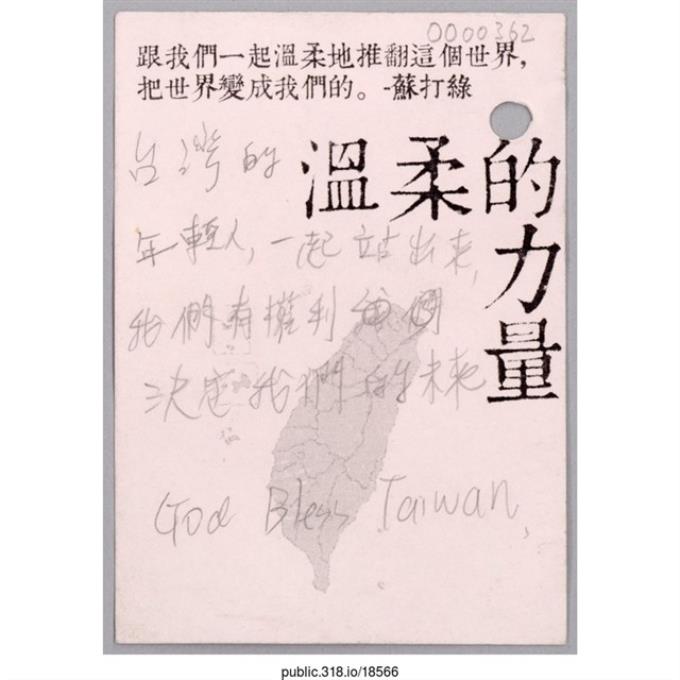 0000362
跟我們一起溫柔地推翻這個世界，
把世界變成我們的。-蘇打綠
溫柔的力量
台灣的
年輕人，一起站出來，
我們有權利
決定我們的未來
God Bless Taiwan,
public.318.io/18566